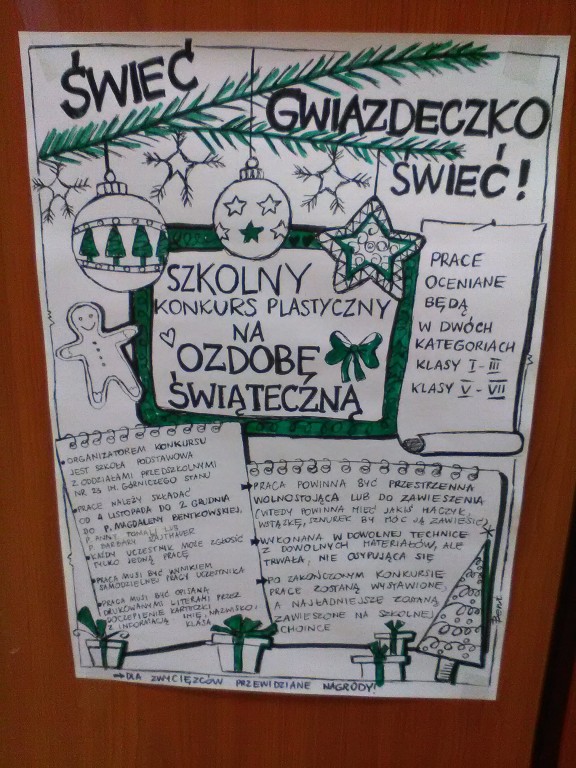 ŚWIEĆ
GWIAZDECZKO
ŚWIEĆ!
SZKOLNY
KONKURS PLASTYCZNY
NA
OZDOBĘ
ŚWIĄTECZNĄ
PRACE
OCENIANE
BĘDĄ
W DWÓCH
KATEGORIACH
KLASY I-III
KLASY V-VII
ORGANIZATOREM KONKURSU
JEST SZKOŁA PODSTAWOWA
Z ODDZIAŁAMI PRZEDSZKOLNYMI
NR 23 IM. GÓRNICZEGO STANU
PRACE NALEŻY SKŁADAĆ
OD 4 LISTOPADA DO 2 GRUDNIA
DO P. MAGDALENY BENTKOWSKIEJ,
P. ANNY TOMALI LUB
P. BARBARY
KAŻDY UCZESTNIK MOŻE ZGŁOSIĆ
TYLKO JEDNĄ PRACĘ
PRACA MUSI BYĆ WYNIKIEM
SAMODZIELNEJ PRACY UCZESTNIKA
PRACA MUSI BYĆ OPISANA
DRUKOWANYMI LITERAMI PRZEZ
DOCZEPIENIE KARTECZKI
Z INFORMACJĄ IMIĘ, NAZWISKO,
KLASA
PRACA POWINNA BYĆ PRZESTRZENNA
WOLNOSTOJĄCA LUB DO ZAWIESZENIA
(WTEDY POWINNA MIEĆ JAKIŚ HACZYK,
WSTĄŻKĘ, SZNUREK BY MÓC JĄ ZAWIESIĆ)
WYKONANA W DOWOLNEJ TECHNICE
Z DOWOLNYCH MATERIAŁÓW, ALE
TRWAŁA, NIE OSYPUJĄCA SIĘ
PO ZAKOŃCZONYM KONKURSIE
PRACE ZOSTANĄ WYSTAWIONE,
A NAJŁADNIEJSZE ZOSTANĄ
ZAWIESZONE NA SZKOLNEJ
CHOINCE
DLA ZWYCIĘZCÓW PRZEWIDZIANE NAGRODY!